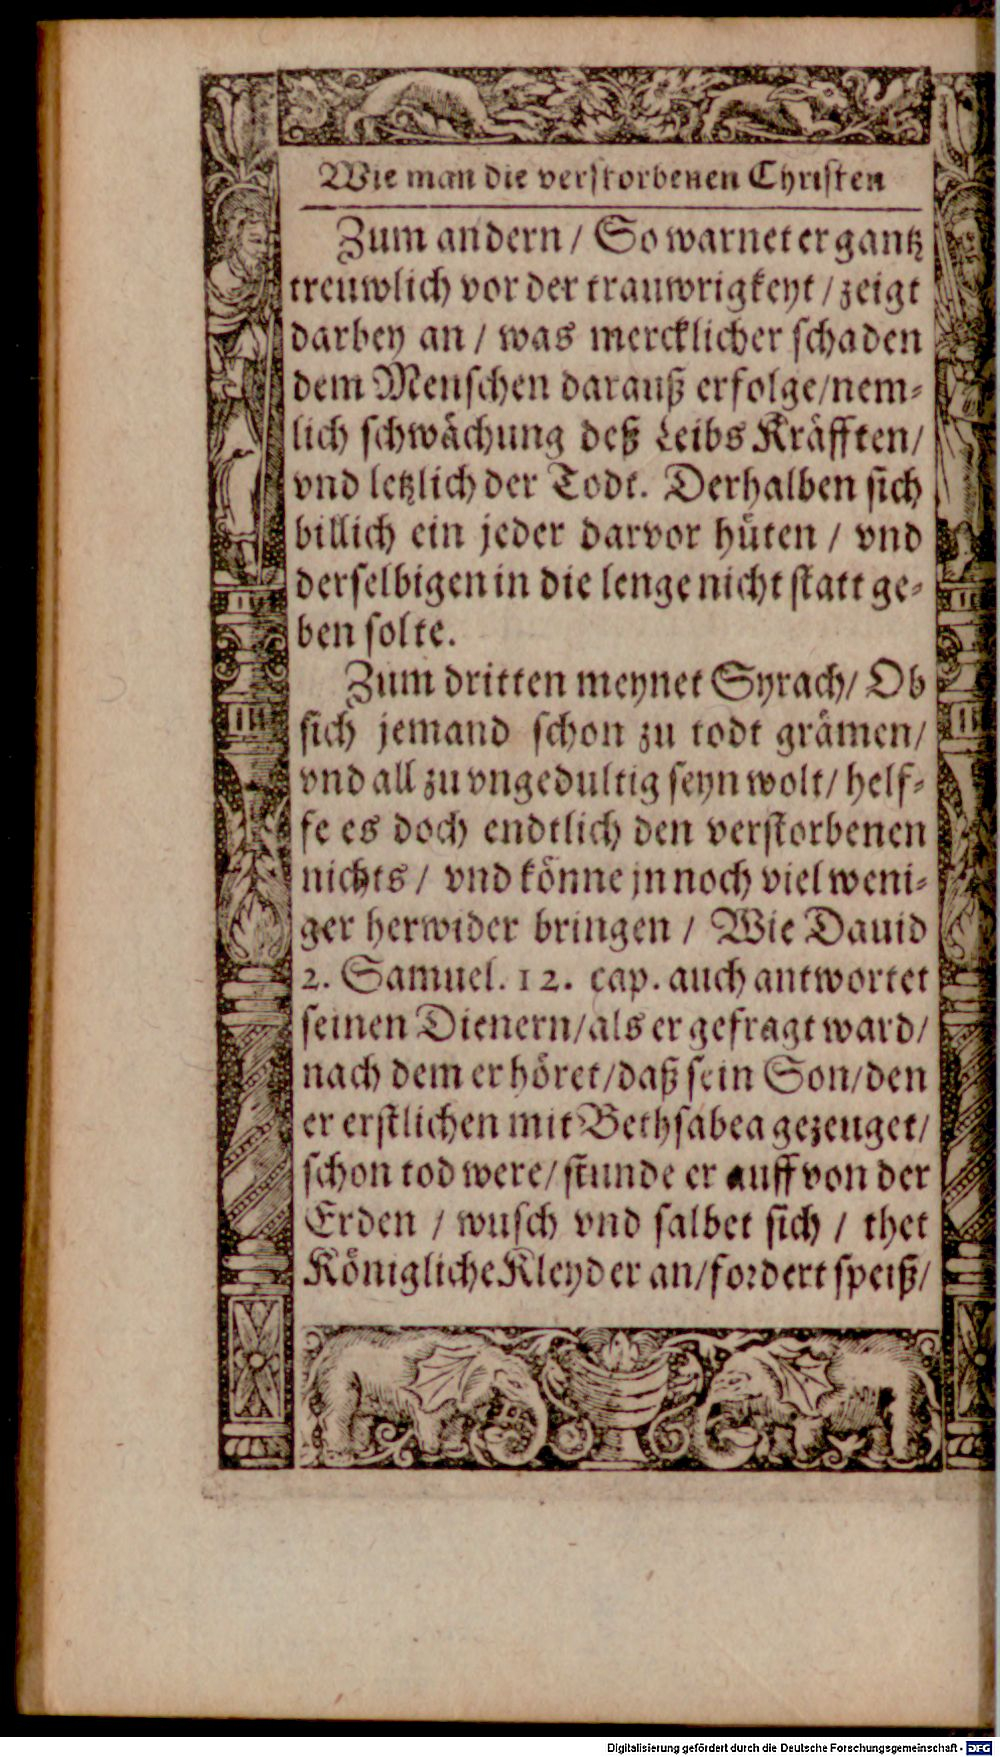 Wie man die verstorbenen Christen
Zum andern / So warnet er gantz
treuwlich vor der trauwrigkeyt / zeigt
darbey an / was mercklicher schaden
dem Menschen darauß erfolge / nem⸗
lich schwächung deß Leibs Kräfften /
vnd letzlich der Todt. Derhalben sich
billich ein jeder darvor hüten / vnd
derselbigen in die lenge nicht statt ge⸗
ben solte.
Zum dritten meynet Syrach / Ob
sich jemand schon zu todt grämen /
vnd all zu vngedultig seyn wolt / helf⸗
fe es doch endtlich den verstorbenen
nichts / vnd könne jn noch viel weni⸗
ger herwider bringen / Wie Dauid
2. Samuel. 12. cap. auch antwortet
seinen Dienern / als er gefragt ward /
nach dem er höret / daß sein Son / den
er erstlichen mit Bethsabea gezeuget /
schon tod were / stunde er auff von der
Erden / wusch vnd salbet sich / thet
Königliche Kleyder an / fordert speiß /
Digitalisierung gefördert durch die Deutsche Forschungsgemeinschaft - DFG